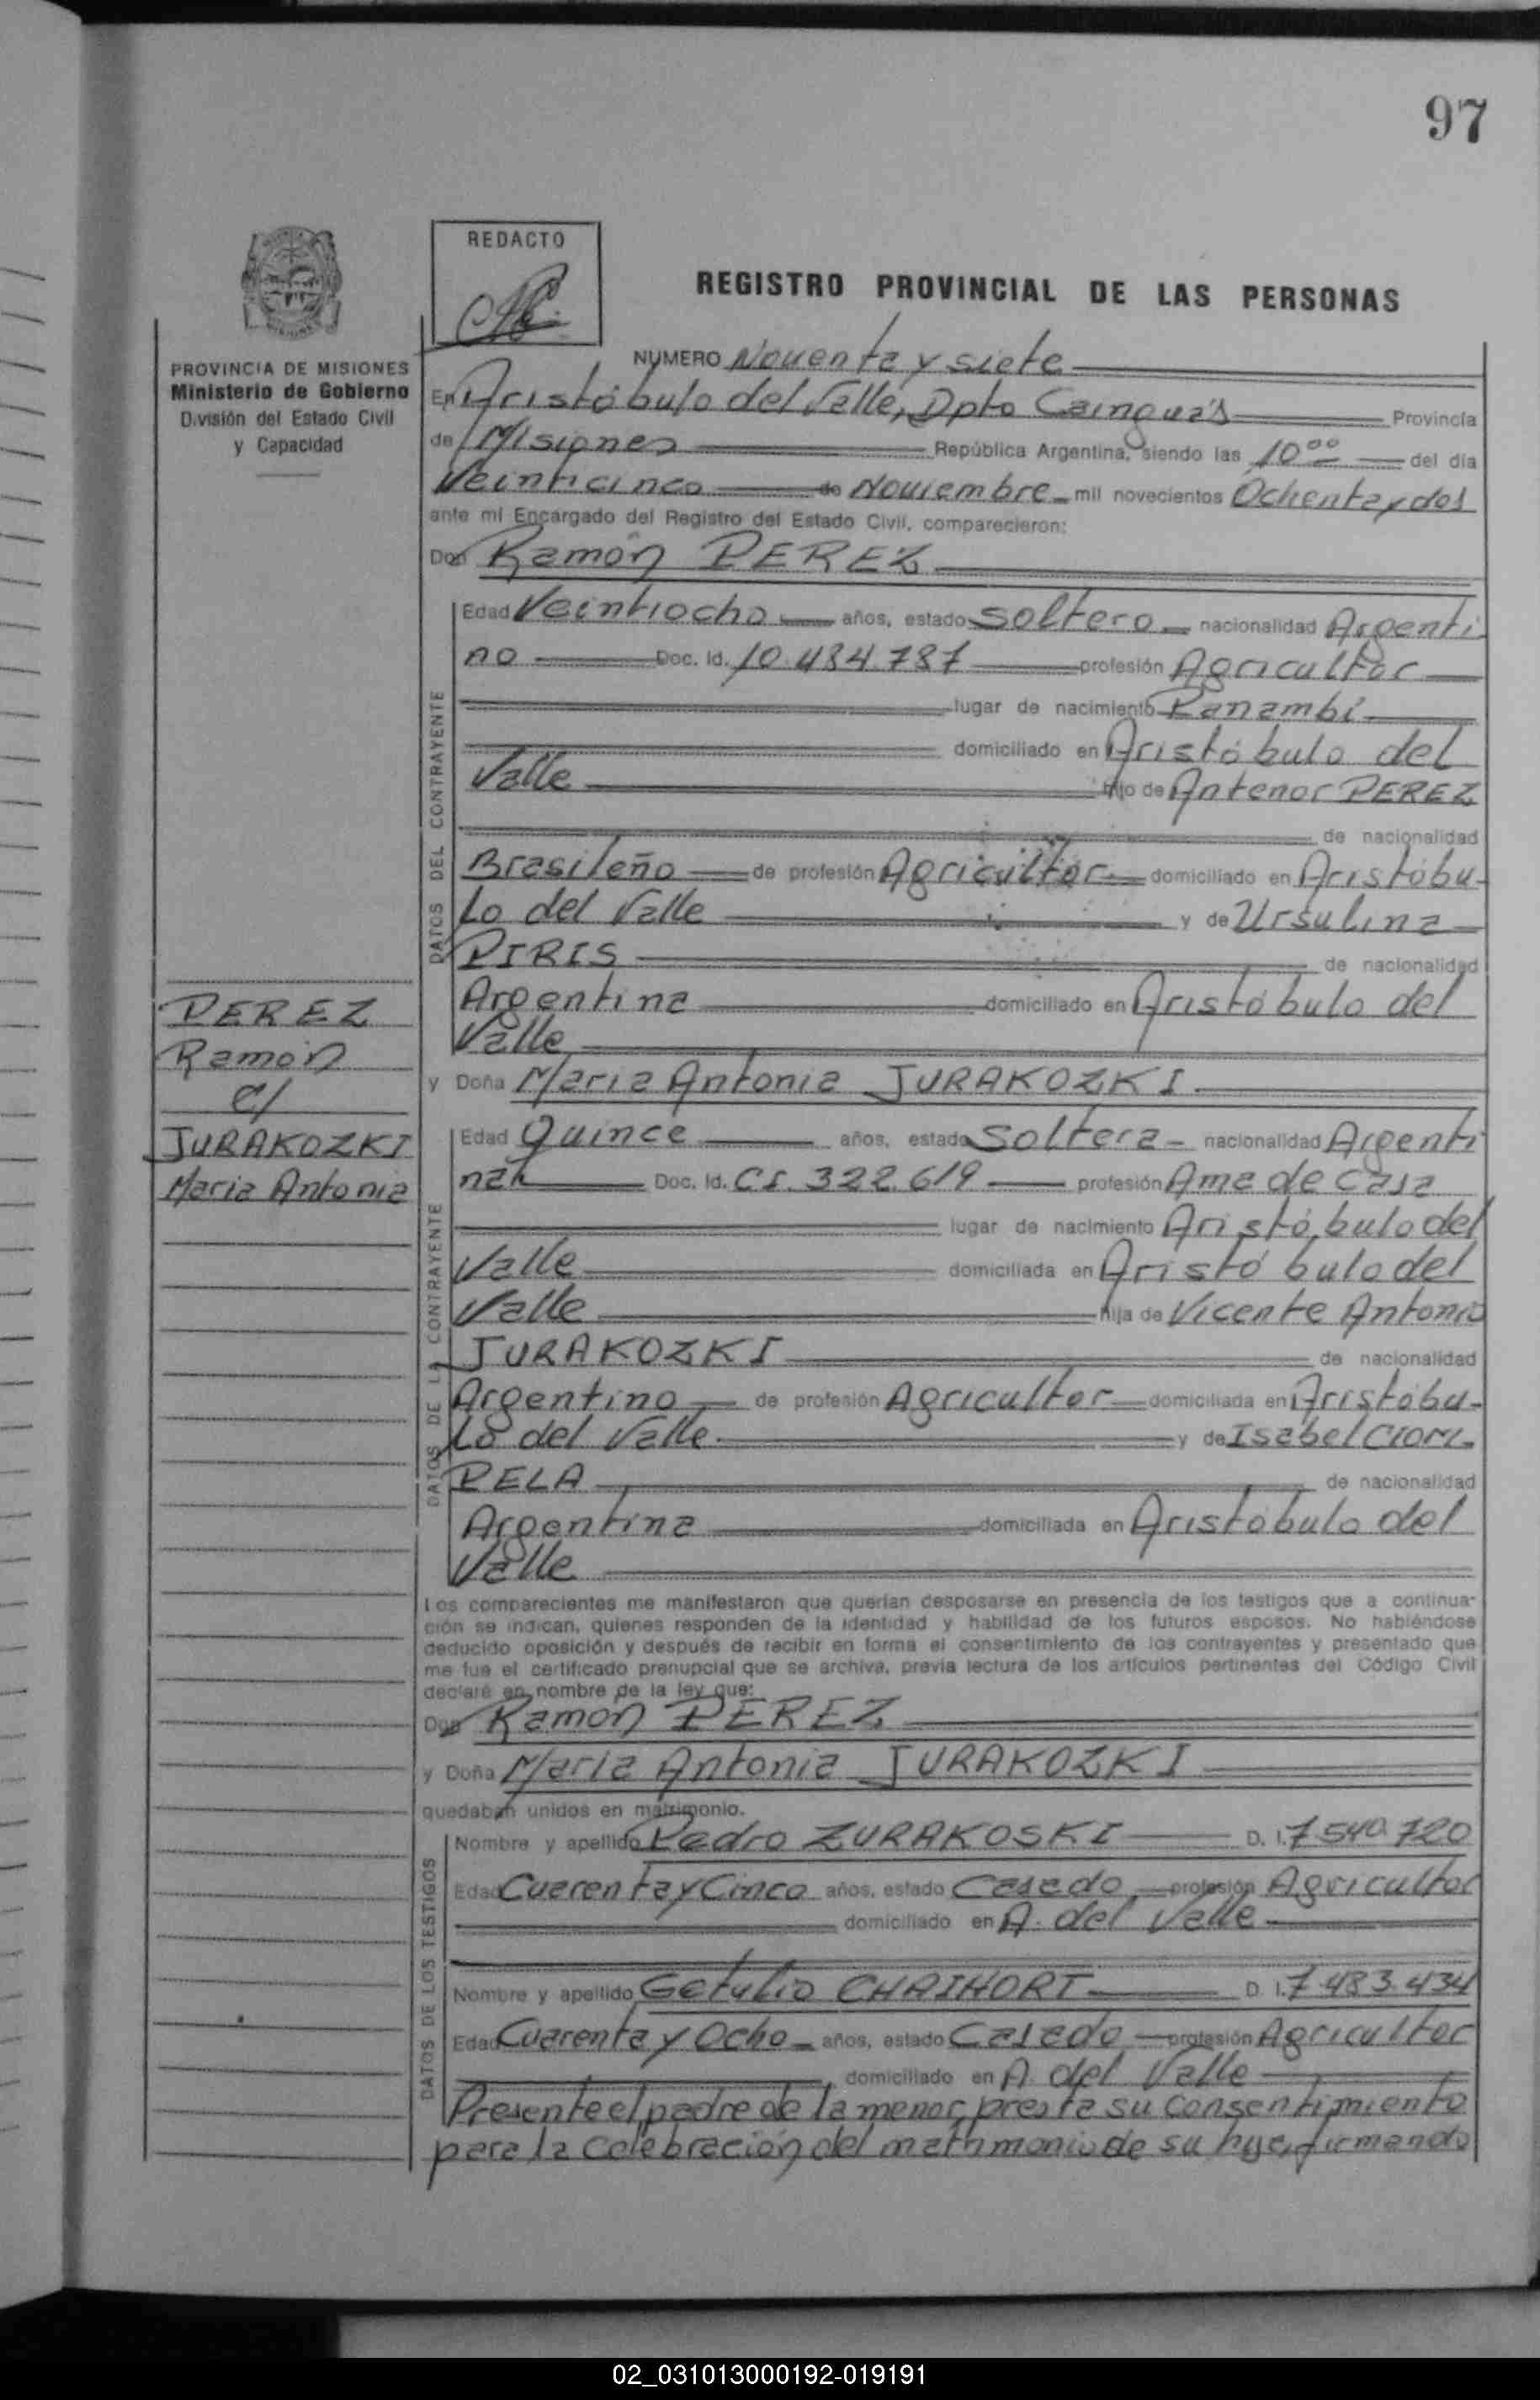 97
REDACTO
REGISTRO PROVINCIAL DE LAS PERSONAS
PROVINCIA DE MISIONES
Ministerio de Gobierno
División del Estado Civil
y Capacidad
NUMERO Noventa y siete
En Aristóbulo del Valle, Dpto Cainguás Provincia
de Misiones República Argentina, siendo las 10⁰⁰ del día
Veinticinco de Noviembre mil novecientos Ochenta y dos
ante mi Encargado del Registro del Estado Civil, comparecieron:
Don Ramón PEREZ
DATOS DEL CONTRAYENTE
Edad Veintiocho años, estado soltero nacionalidad Argenti
no Doc. Id. 10.484.787 profesión Agricultor
lugar de nacimiento Panambí
domiciliado en Aristóbulo del
Valle hijo de Antenor PEREZ
de nacionalidad
Brasileño de profesión Agricultor domiciliado en Aristóbu-
lo del Valle y de Ursulina
PIRIS de nacionalidad
Argentina domiciliado en Aristóbulo del
Valle
PEREZ
Ramón
c/
JURAKOZKI
Maria Antonia
y Doña Maria Antonia JURAKOZKI
DATOS DE LA CONTRAYENTE
Edad Quince años, estado soltera nacionalidad Argenti
na Doc. Id. C.I. 322.619 profesión Ama de Casa
lugar de nacimiento Aristóbulo del
Valle domiciliada en Aristóbulo del
Valle hija de Vicente Antonio
JURAKOZKI de nacionalidad
Argentino de profesión Agricultor domiciliada en Aristóbu-
lo del Valle y de Isabel
PELA de nacionalidad
Argentina domiciliada en Aristóbulo del
Valle
Los comparecientes me manifestaron que querían desposarse en presencia de los testigos que a continua-
ción se indican, quienes responden de la identidad y habilidad de los futuros esposos. No habiéndose
deducido oposición y después de recibir en forma el consentimiento de los contrayentes y presentado que
me fue el certificado prenupcial que se archiva, previa lectura de los artículos pertinentes del Código Civil
declaré en nombre de la ley que:
Don Ramón PEREZ
y Doña Maria Antonia JURAKOZKI
quedaban unidos en matrimonio.
DATOS DE LOS TESTIGOS
Nombre y apellido Pedro ZURAKOSKI D. I. 7540.720
Edad Cuarenta y Cinco años, estado Casado profesión Agricultor
domiciliado en A. del Valle
Nombre y apellido Getulio CHAIHORT D. I. 7.483.434
Edad Cuarenta y Ocho años, estado Casado profesión Agricultor
domiciliado en A. del Valle
Presente el padre de la menor, presta su consentimiento
para la celebración del matrimonio de su hija, firmando
02_031013000192-019191